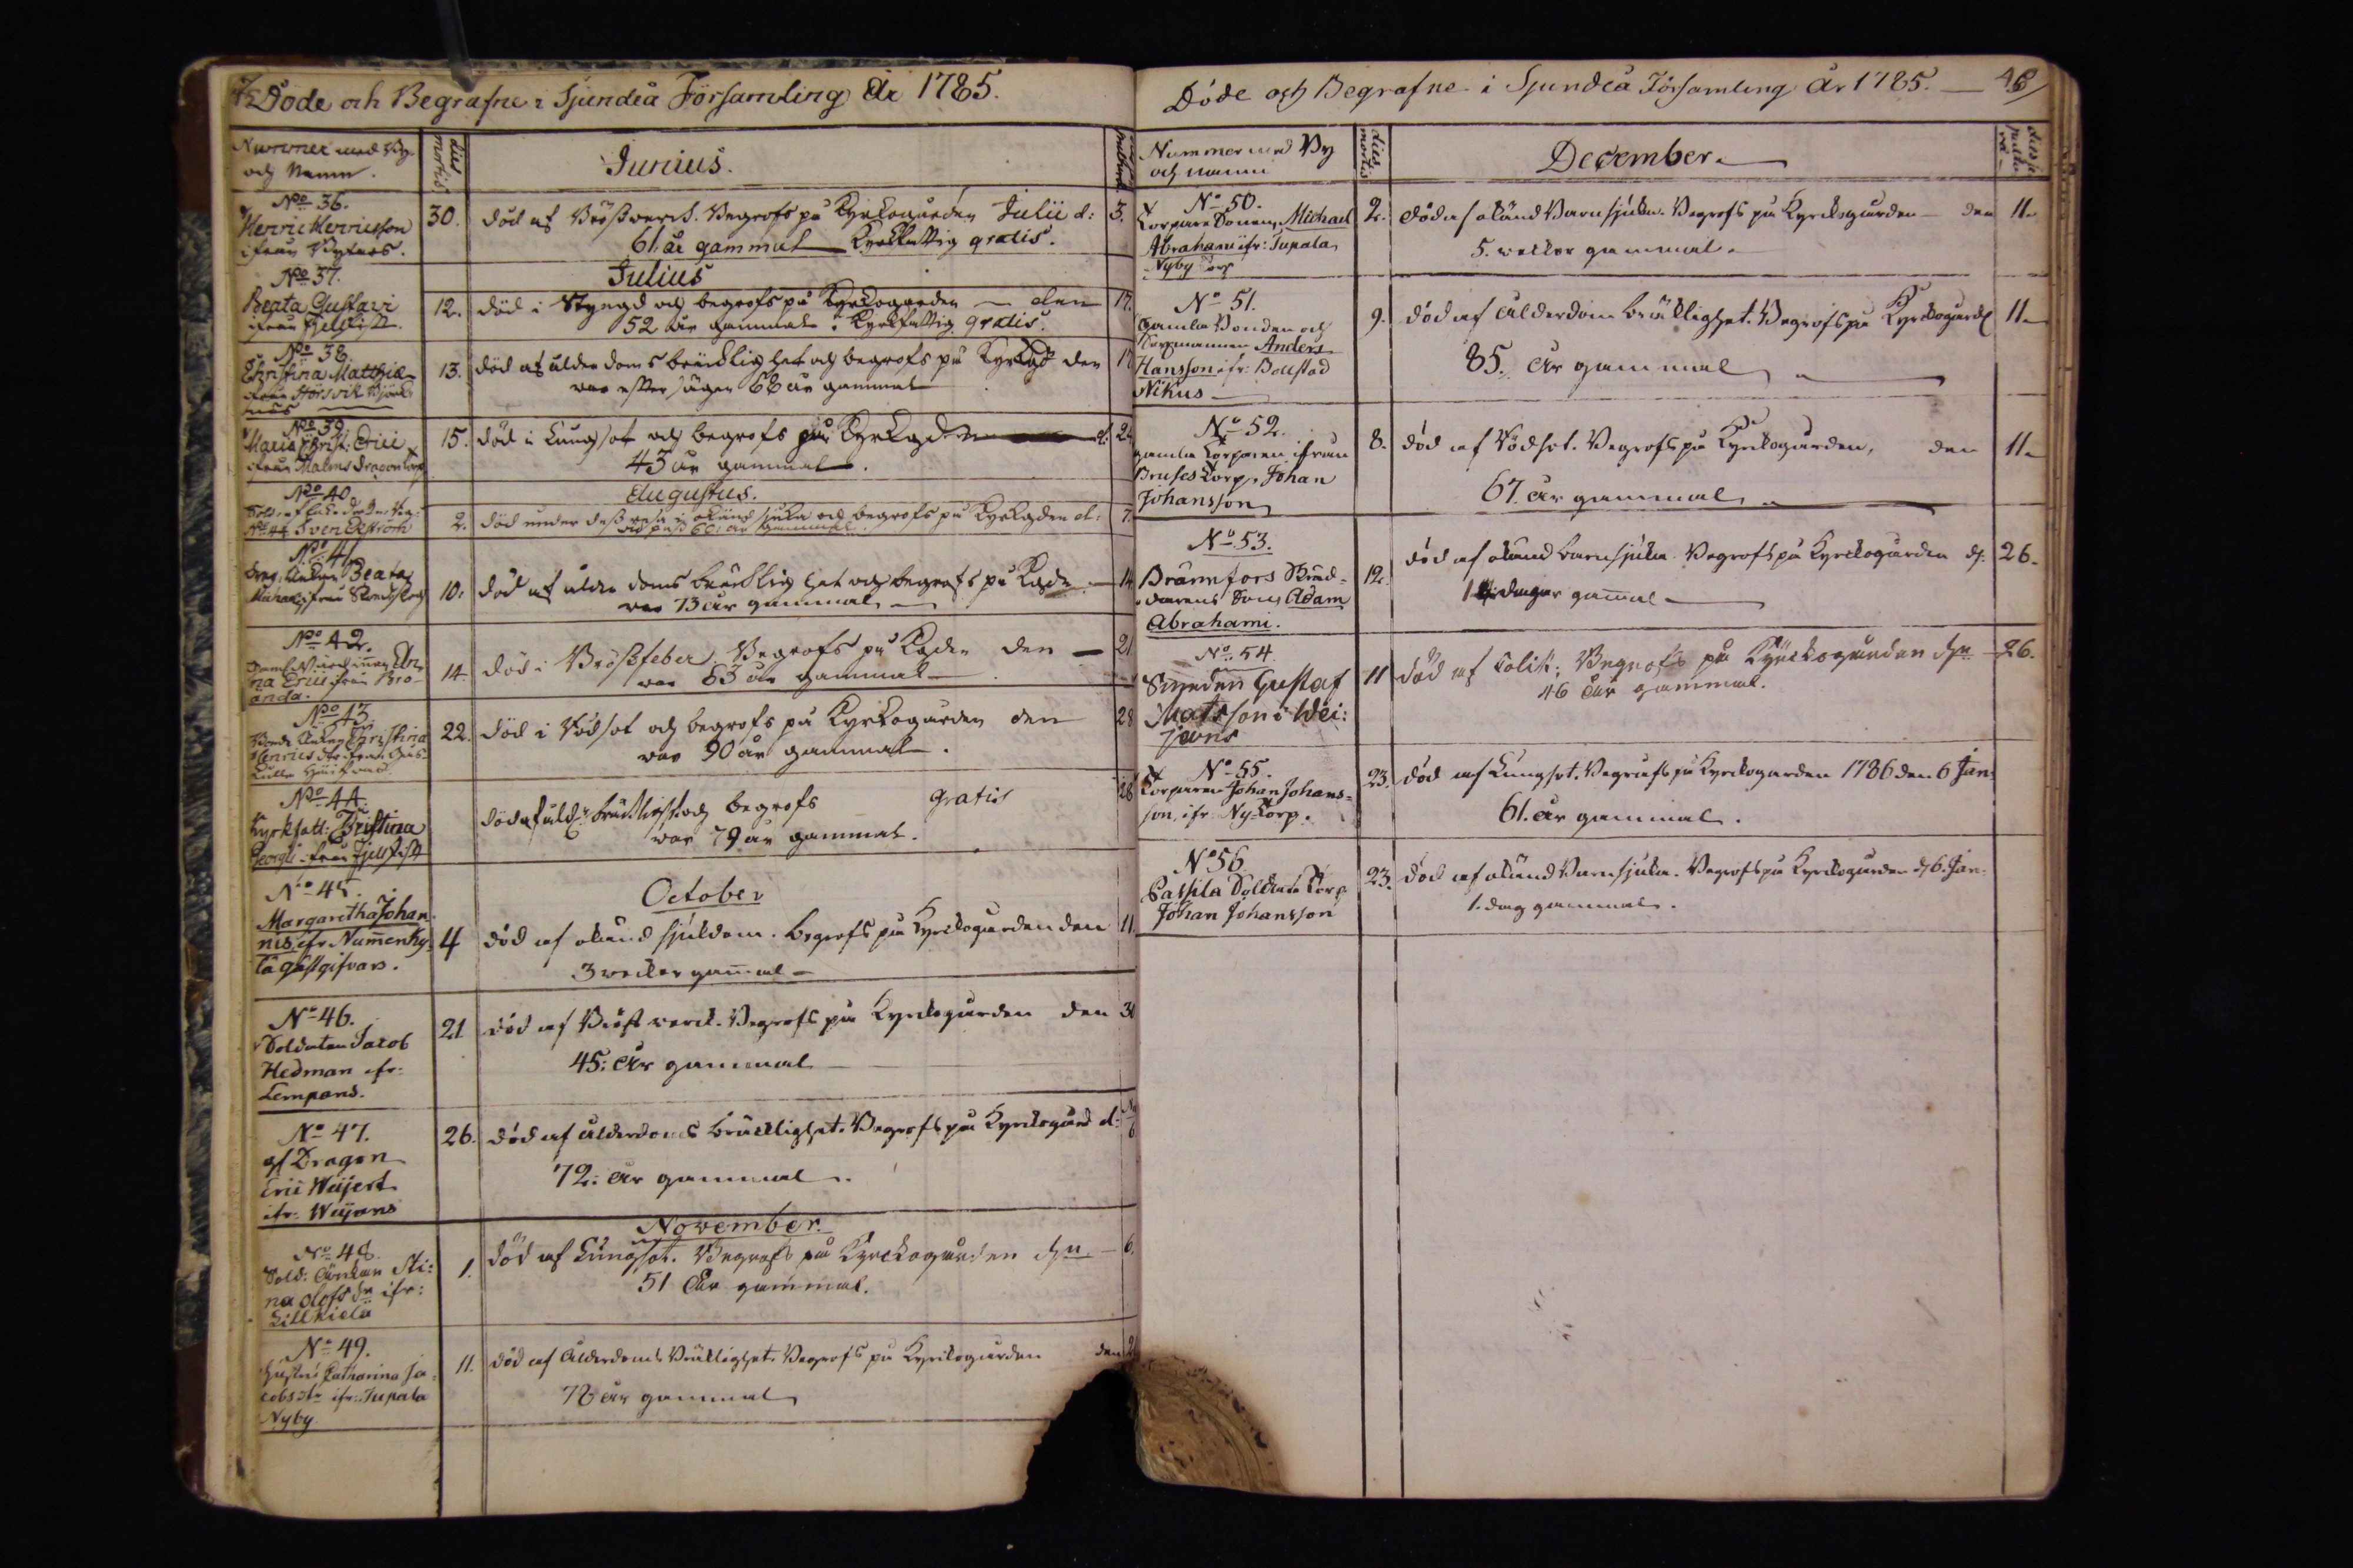 Döde och Begrafne i Sjundeå Församling År 1785.
Nummer med By
och Namn.
dies mortis
Junius.
No 36.
Henric Henricsson
ifrån Byknäs.
30.
död af Bröstverck. Begrofs på Kyrkogården Julii d: 3.
61. år gammal Kyrckfattig gratis.
Julius
No 37.
Beata Gustavi
12.
död i Styngd och begrofs på Kyrkogården den 17.
52 år gammal: Kyrkfattig gratis.
No 38.
Christina Matthiæ
ifrån Störsvik Björk
näs
13.
död af ålderdoms bräcklighet och begrofs på Kyrkogd den 17
war efter sägen 68 år gammal
No 39.
Maria Christ: Erici
ifrån Malms Dragontorp
15.
död i Lungsot och begrofs på Kyrkogd
43 år gammal.
Augustus.
No 40
No 44 Sven Ekström
2.
död under dess resa i okänd sjuka och begrofs på Kyrkogden d: 7.
60: år gammal.
No 41.
Drag: Änkan Beata
10.
död af ålderdoms bräcklighet och begrofs på Kgdn 14
war 73 år gammal
No 42.
na Erici ifrån Bro-
anda.
14.
död i Bröstfeber. Begrofs på Kgdn den 21
war 63 år gammal
No 43.
Änkan Christina
Henrics dr
22.
död i Rödsot och begrofs på Kyrkogården den 28
war 90 år gammal.
No 44.
Kyrkfatt: Christina
Georgii ifrån
död af åld: bräcklight och begrofs gratis 28
war 79 år gammal.
October
No 45.
Margaretha Johan-
nis, ifr Numenky-
la gästgifvars.
4
död af okänd sjukdom. begrofs på Kyrckogården den 11.
3 veckor gam̄al
No 46.
Soldaten Jacob
Hedman ifr:
Lempans.
21.
död af Bröst verck. Begrofs på Kyrckogården den 30
45: år gammal
No 47.
af Dragon
Eric Weijert
ifr: Weijans
26.
död af ålderdoms bräcklighet. Begrofs på Kyrckogård d: 6
72: år gammal.
November.
No 48.
Sold: Änkan Sti:
na Olofs dr ifr:
Lillkielä
1.
död af Lungsot. Begrofs på Kyrckogården dn 6.
51 År gammal.
No 49.
Hustru Catharina Ja-
cobs dr ifr: Tupala
Nyby
11.
död af Ålderdoms Bräcklighet. Begrofs på Kyrckogården den 2
78 år gammal
Döde och Begrafne i Sjundeå Församling År 1785. 48
Nummer med By
och namn
dies mortis
December.
No 50.
Torpare Sonen, Michael
Abrahami ifr: Tupala
Nyby torp
2.
död af okänd Barnsjuka. Begrofs på Kyrckogården den 11.
5. veckor gammal.
No 51.
Gamla Bonden och
Anders
Hansson ifr: Bollstad
Nikus
9.
död af ålderdom bräcklighet. Begrofs på Kyrckogård 11.
85. år gammal
No 52.
gamla Torparen ifrån
Bruses Torp, Johan
Johansson
8.
död af Rödsot. Begrofs på Kyrckogården, den 11.
67. år gammal
No 53.
Brännfors
Son, Adam
Abrahami.
12.
död af okänd barnsjuka. Begrofs på Kyrckogården d: 26.
dagar gam̄al
No 54.
Smeden Gustaf
Matsson i Wei:
jans
11
död af Colik; Begrofs på Kyrckogården dn 26.
46 År gammal.
No 55.
Torparen Johan Johans-
son, ifr Ny-Torp.
23.
död af Lungsot. Begrofs på Kyrckogården 1786 den 6 Jan:
61. år gammal.
No 56
Passila Soldate Torp
Johan Johansson
23.
död af okänd Barnsjuka. Begrofs på Kyrckogården d 6. Jan:
1. dag gammal.